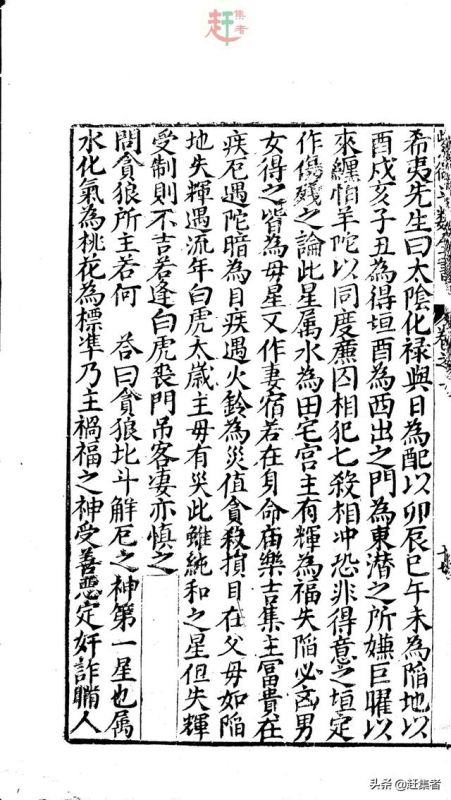 赶集者
希夷先生曰太陰化禄與日為配以卯辰巳午未為陷地以
酉戍亥子丑為得垣酉為西出之門為東潜之所嫌巨曜以
來纏怕羊陀以同度亷囚相犯七殺相冲恐非得意之垣定
作傷殘之論此星属水為田宅宫主有輝為福失陷必凶男
女得之皆為毋星又作妻宿若在身命庙樂吉集主冨貴在
疾厄遇陀暗為目疾遇火鈴為災值貪殺損目在父毋如陷
地失輝遇流年白虎太歲主毋有災此雖純和之星但失輝
受制則不吉若逢白虎喪門吊客凄亦慎之
問貪狼所主若何 荅曰貪狼北斗解厄之神第一星也属
水化氣為桃花為標準乃主禍福之神受善惡定奸詐瞞人
头条 @赶集者